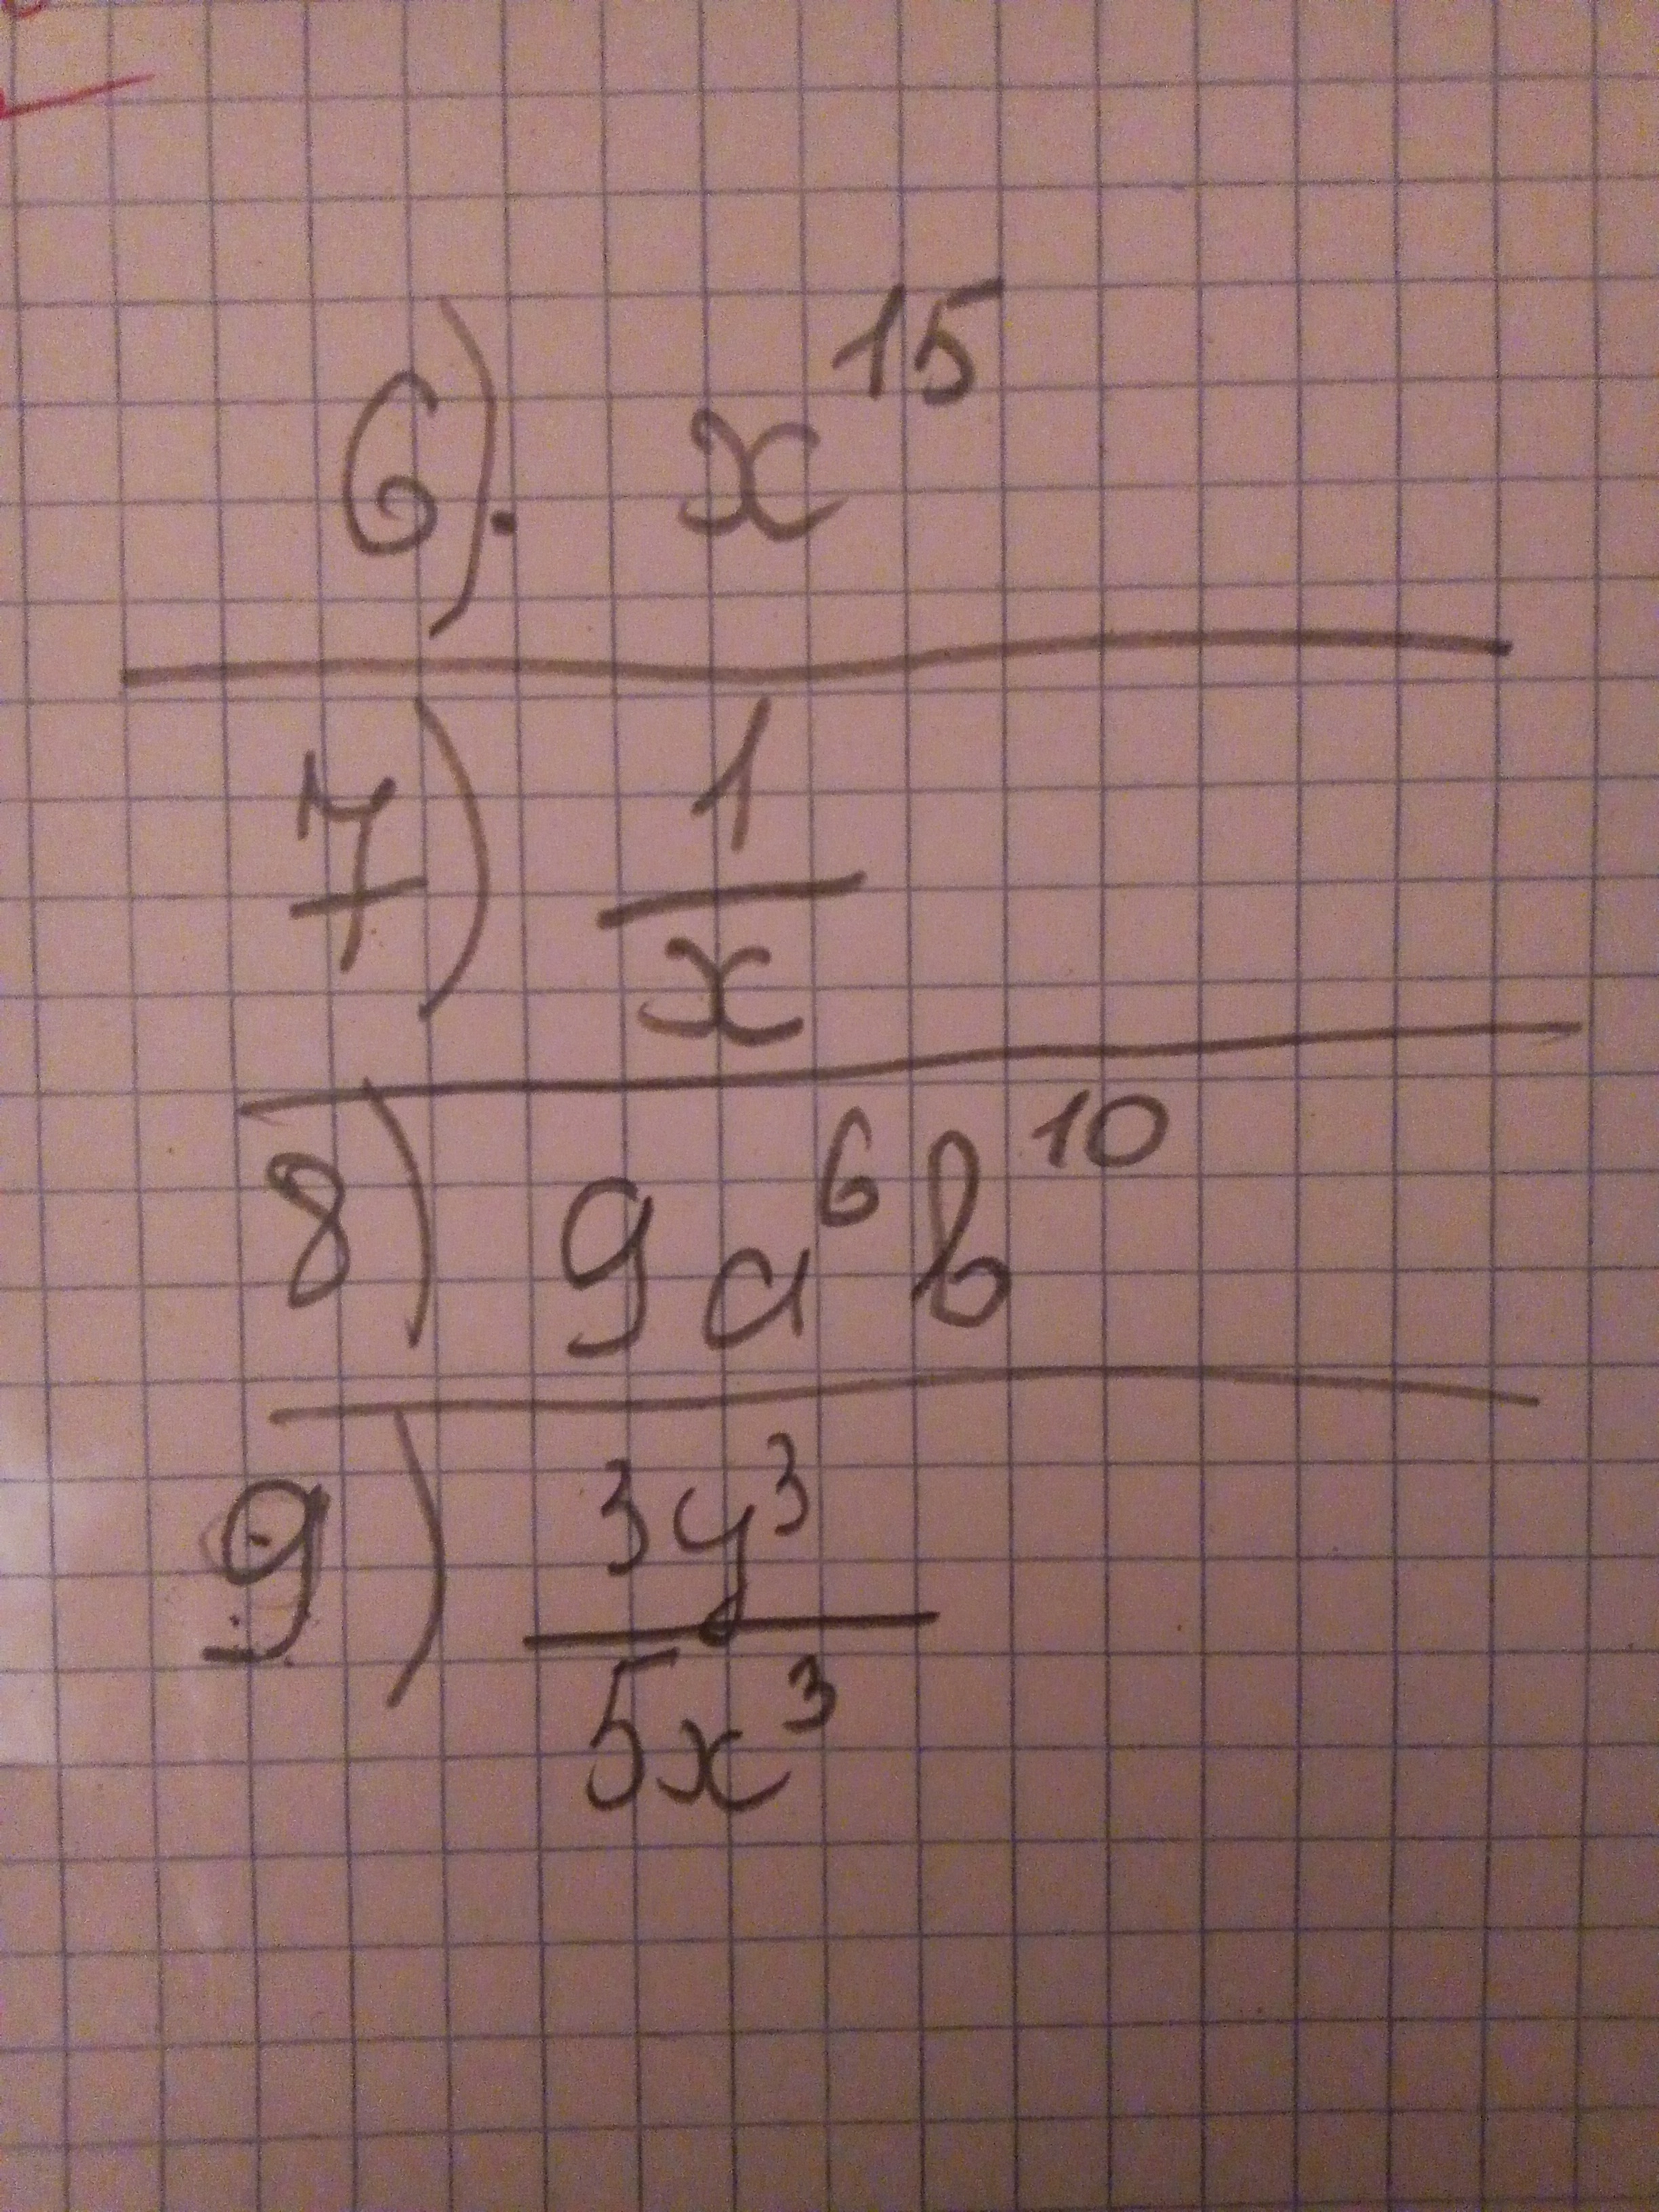 6). x¹⁵
7) 1
x
8) 9a⁶b¹⁰
9) 3y³
5x³